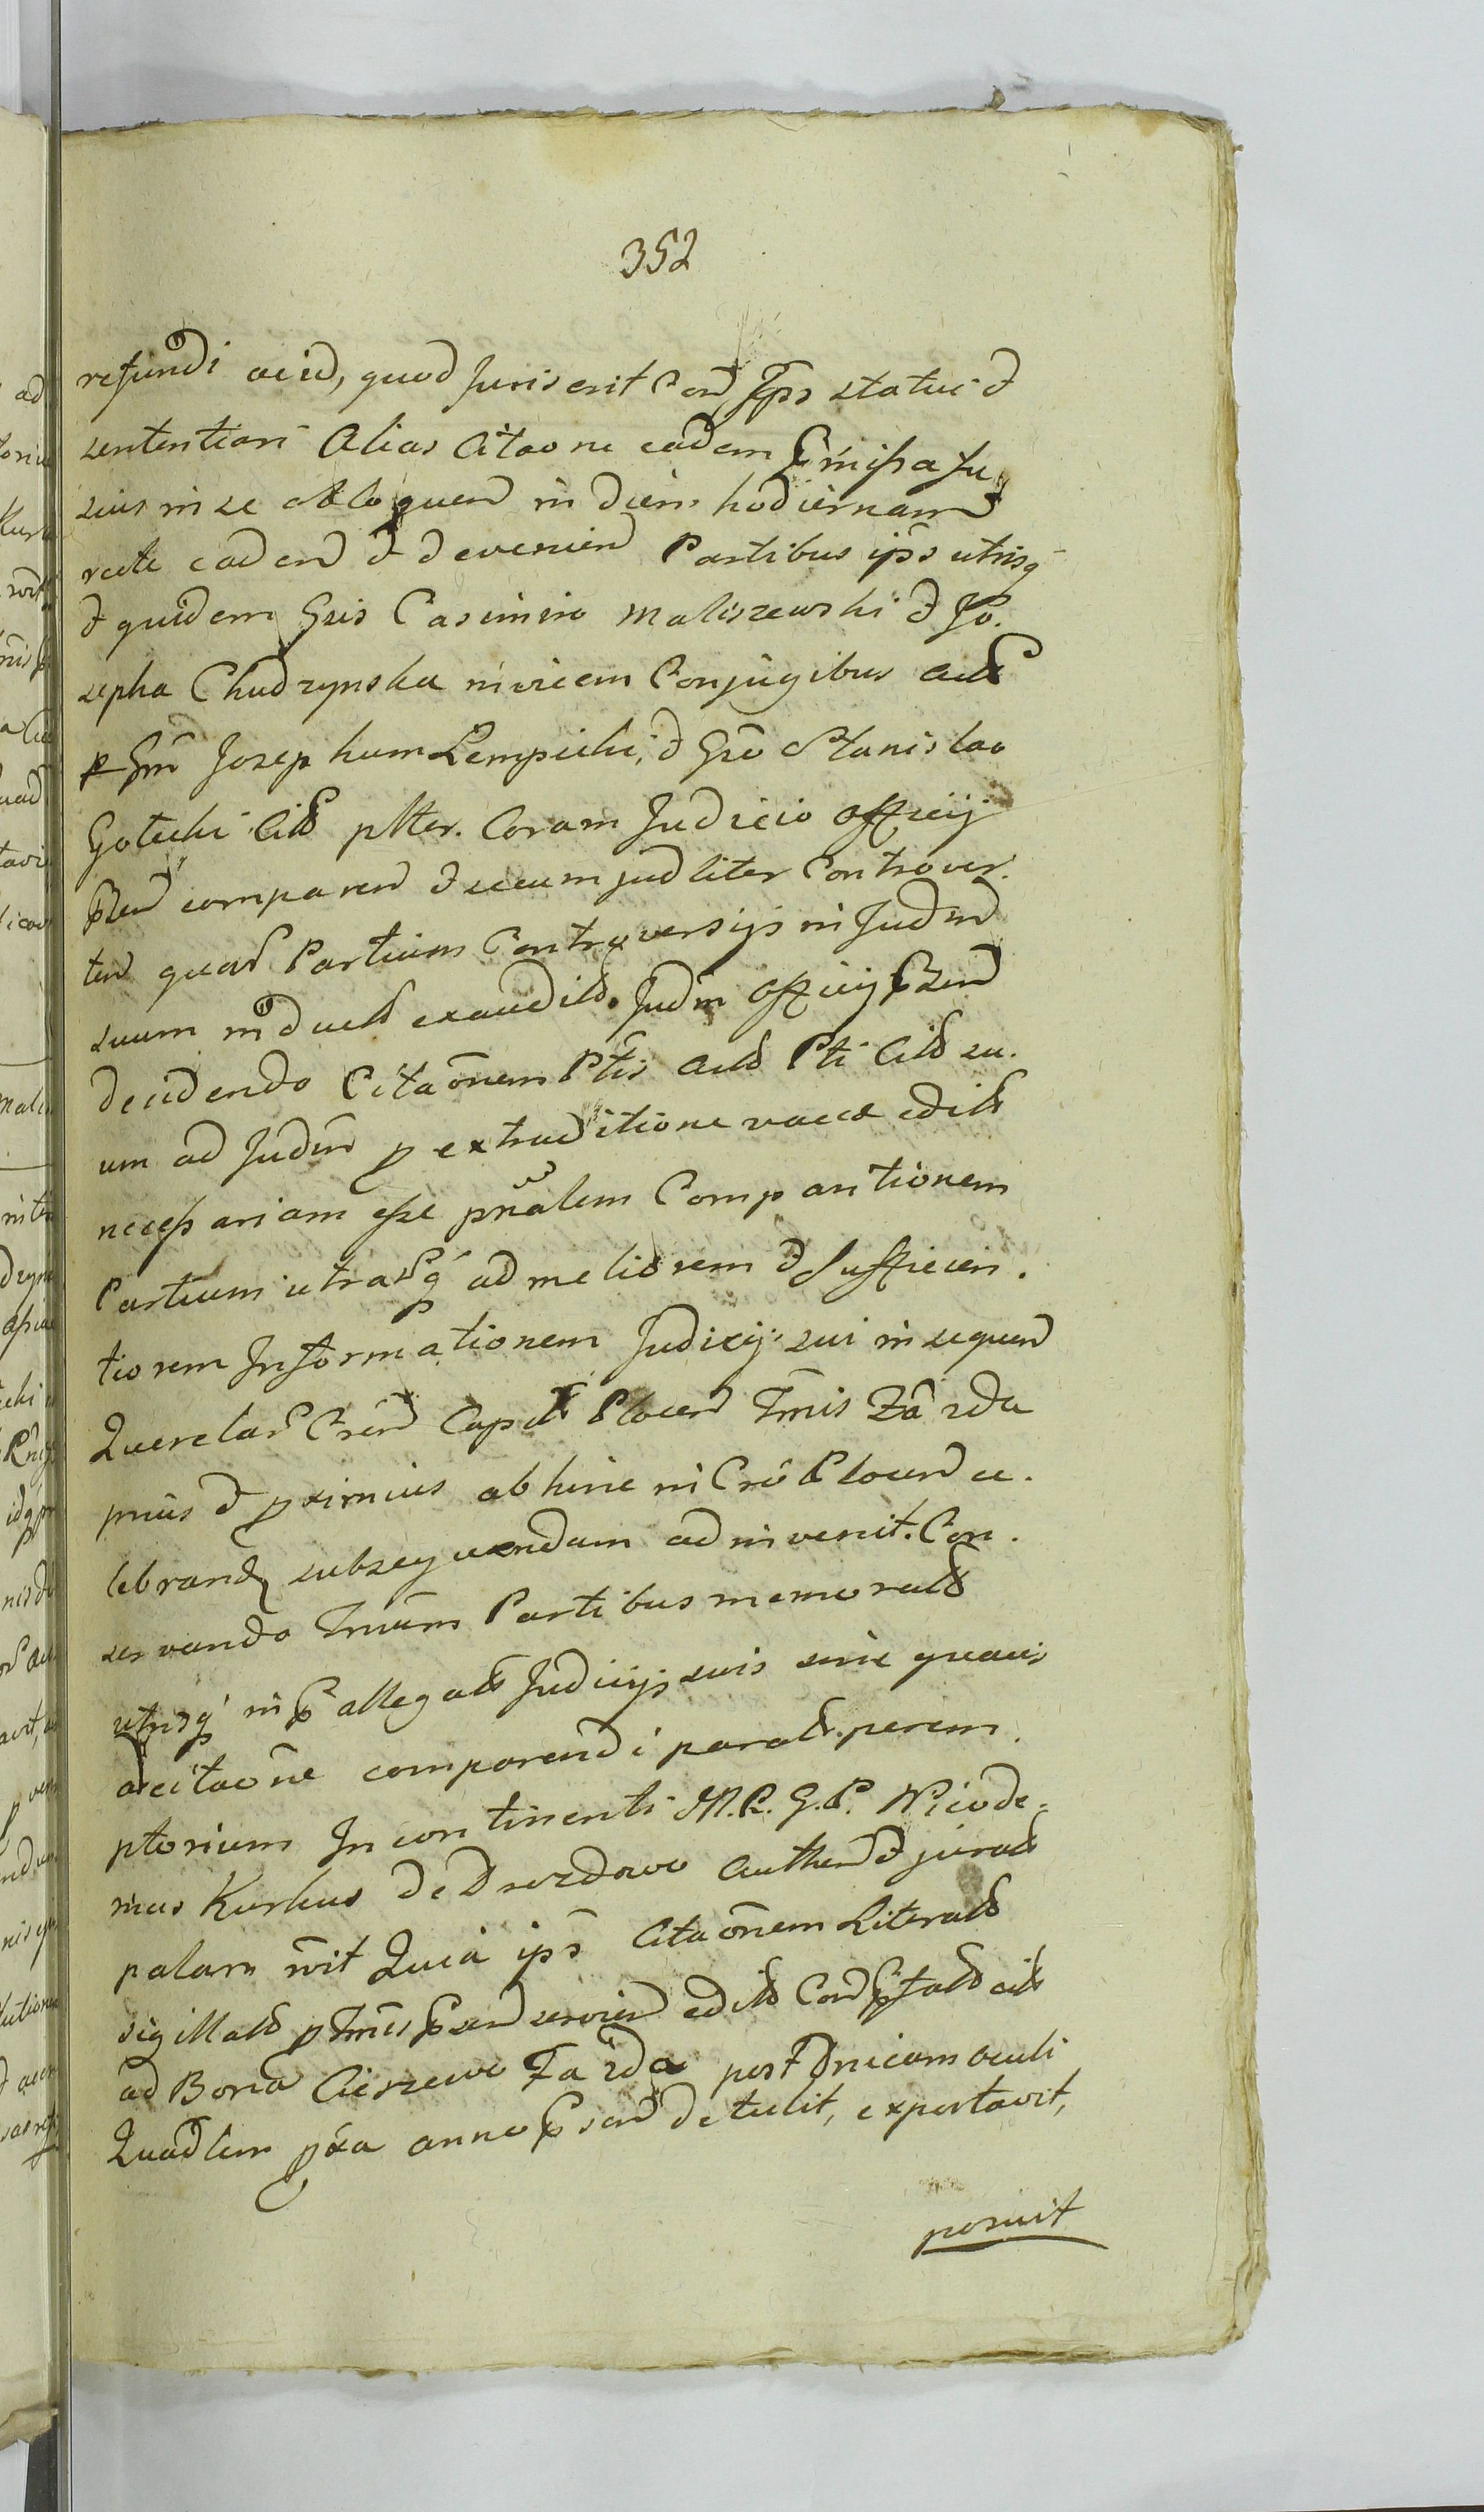 352
refundi ac id, quod Juris erit Cond Ipso statui et
sententiari Alias Citaone eadem praemissa fu
sius in se obloquend in diem hodiernam
recte caden et devenien Partibus ipso utrisq
et quidem Gsis Casimiro Maliszewski et Jo.
sepha Chudzynska invicem Conjugibus Act
p Gm Josephum Lempicki, et Gso Stanislao
Gotecki Citt pltter. Coram Judicio Officij
prn comparen et secum judliter Controver.
ten quar Partium Controversijs in Judm
suum induct exaudit. Judm Officij prn
decidendo Citaonem Ptis Act Pti Citt su.
um ad Judm p extraditione vaccae edit
necessariam esse psnalem Comparitionem
Partium utrasq ad meliorem et sufficien.
tiorem Informationem Judicij sui in sequen
Querelar Crn Capit Plocen Tmis Za 2da
prius et proximius abhinc in Cro Plocen ce.
lebrand subsequendam adinvenit. Con.
servando Tmum Partibus memorat
utrisq in p allegat Judicijs suis sine quavis
adcitaone comparendi parat. perem.
ptorium In continenti M. R. G. P. Nicode.
mus Kurkus de Drozdowo authen et jurat
palam rvit Quia ips Citaonem Literatt
sigillatt p Tmis prn servien editt Cond ptatt citt
ad Bona Cieszewo Fa 2da post Dnicam oculi
Quadlem pxa anno prn detulit, exportavit,
posuit